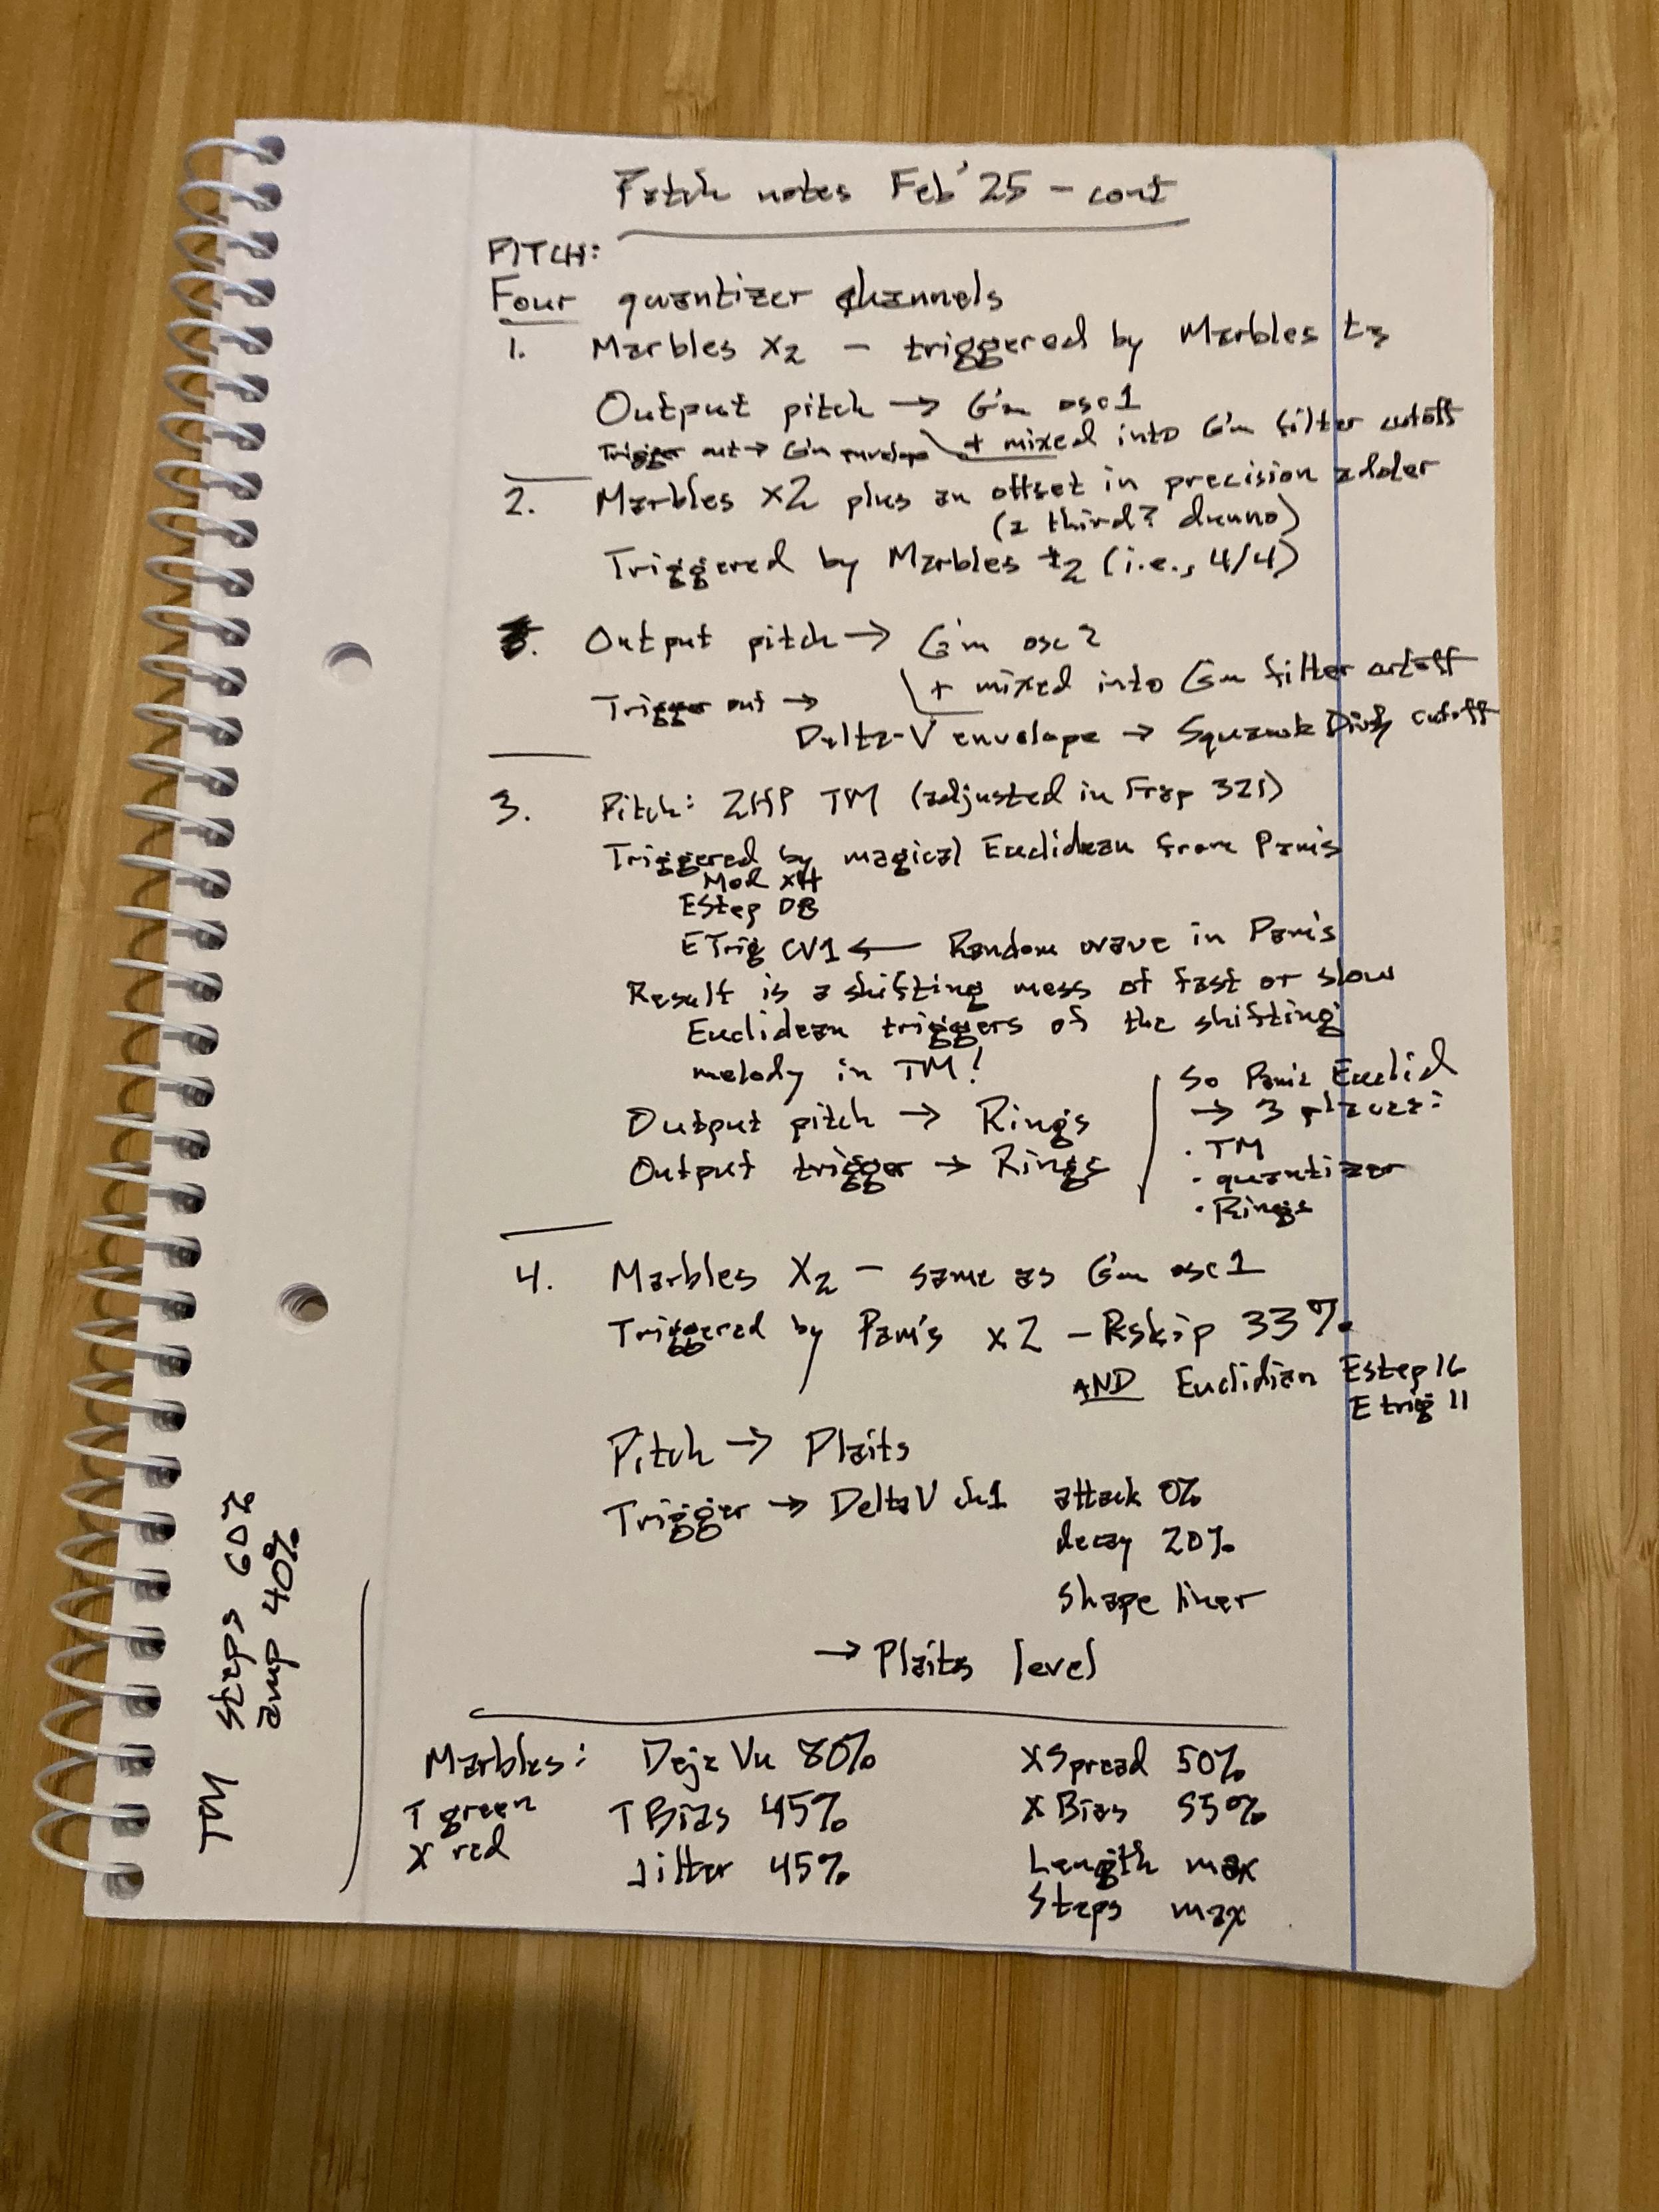 Patch notes Feb '25 - cont
PITCH:
Four quantizer channels
1. Marbles X2 - triggered by Marbles t3
Output pitch → G'm osc 1
Trigger out → G'm envelope + mixed into G'm filter cutoff
2. Marbles X2 plus an offset in precision adder
(a third? dunno)
Triggered by Marbles t2 (i.e., 4/4)
Output pitch → G'm osc 2
+ mixed into G'm filter cutoff
Trigger out →
Delta-V envelope → Squawk Dirty cutoff
3. Pitch: 2HP TM (adjusted in Frap 321)
Triggered by magical Euclidean from Pam's
Mod x4
EStep 08
ETrig CV1 ← Random wave in Pam's
Result is a shifting mess of fast or slow
Euclidean triggers of the shifting
melody in TM!
Output pitch → Rings
Output trigger → Rings
So Pam's Euclid
→ 3 places:
· TM
· quantizer
· Rings
4. Marbles X2 - same as G'm osc 1
Triggered by Pam's x2 - Rskip 33%
AND Euclidian Estep 16
Etrig 11
Pitch → Plaits
Trigger → DeltaV ch1 attack 0%
decay 20%
shape liner
→ Plaits level
TM steps 60%
amp 40%
Marbles: Deja Vu 80% X Spread 50%
T green T Bias 45% X Bias 55%
X red Jitter 45% Length max
Steps max